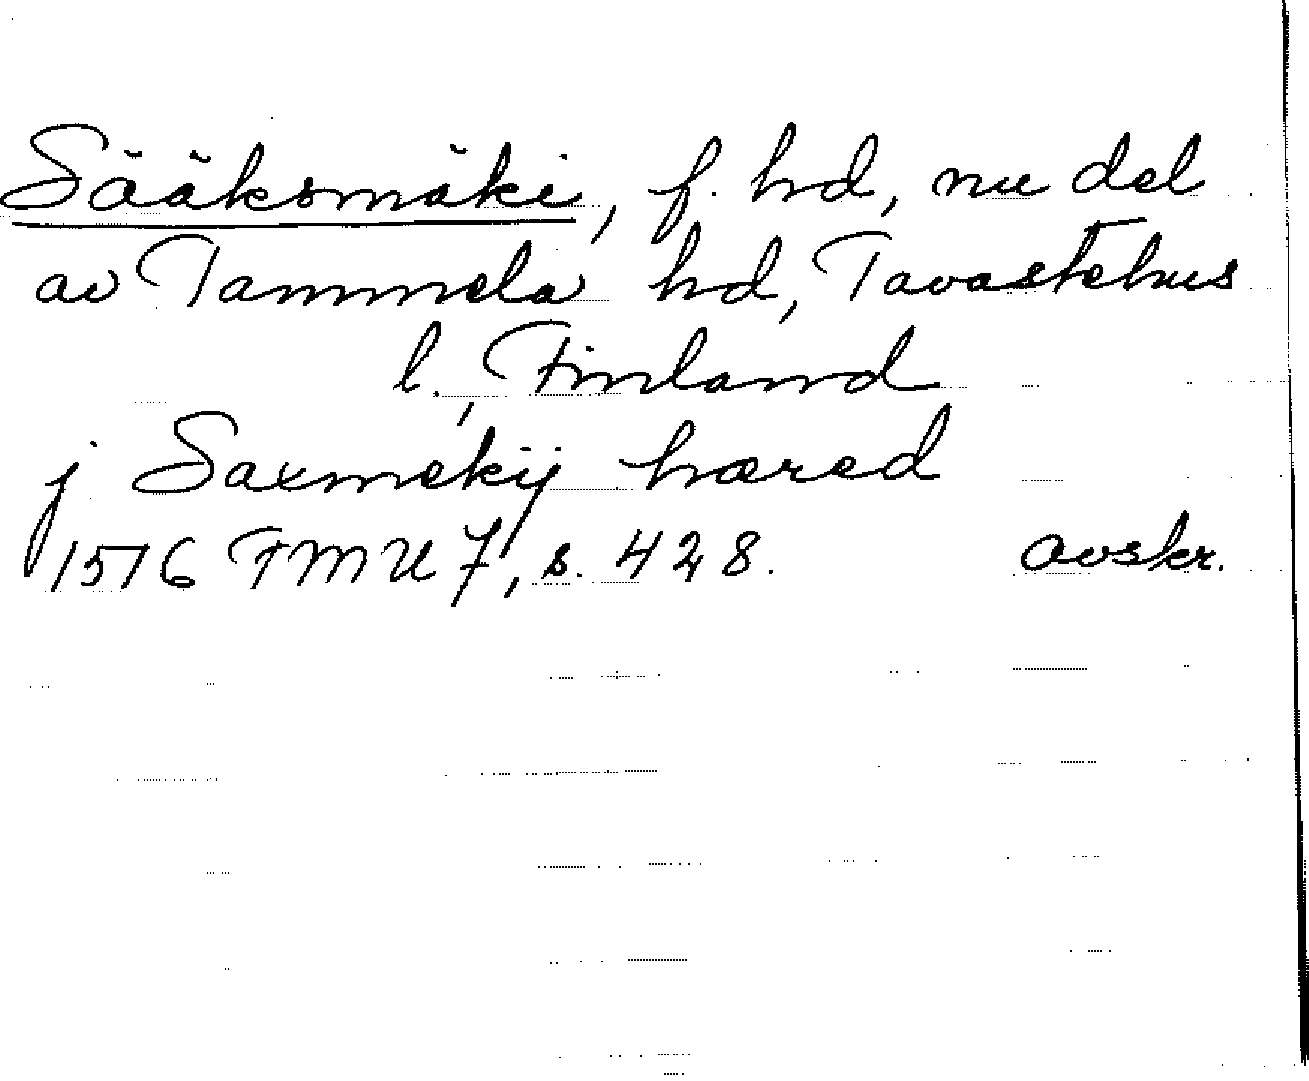 Sääksmäki, f. hd, nu del
av Tammela hd, Tavastehus
l., Finland
j Saxmekij hæred
1516 FMU 7, s. 428. avskr.